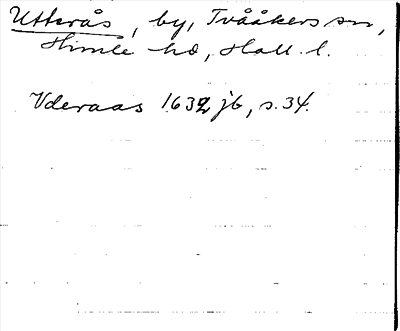 Utterås, by, Tvååkers sn,
Himle hd, Hall. l.
Vderaas 1632 jb, s. 34.